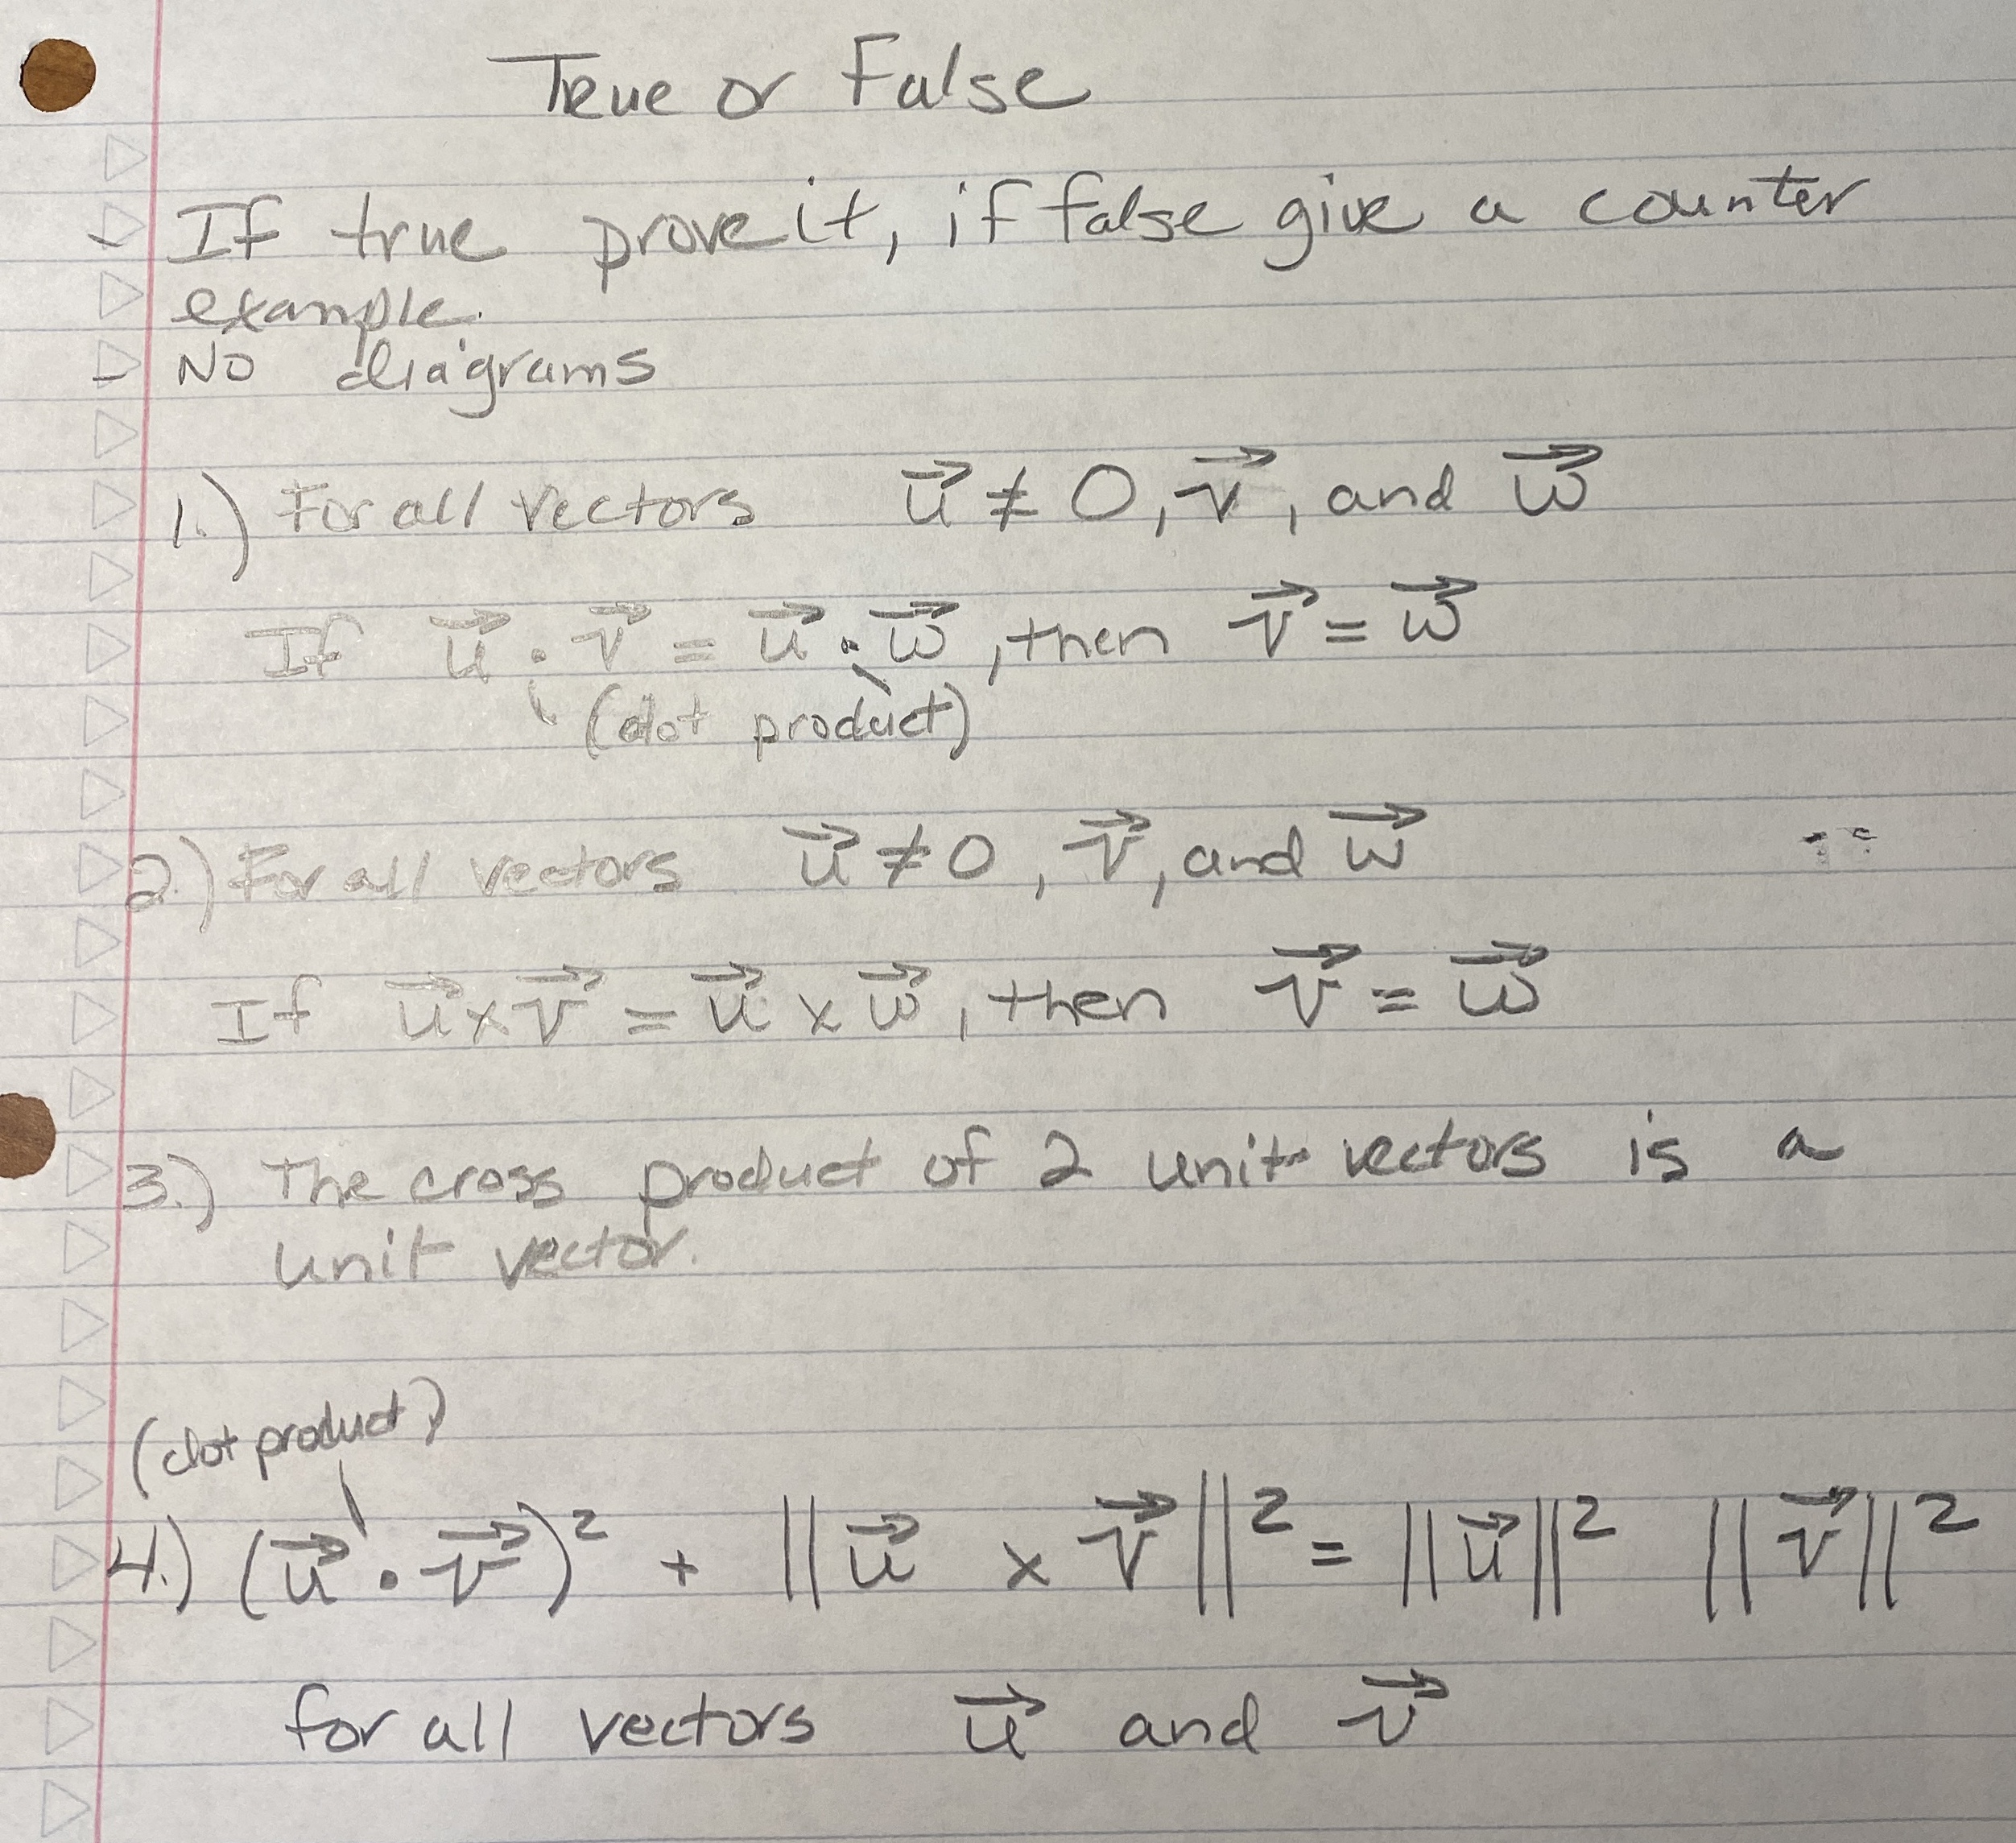 True or False
If true prove it, if false give a counter
example.
No diagrams
1.) For all vectors u⃗ ≠ 0, v⃗, and w⃗
If u⃗ · v⃗ = u⃗ · w⃗, then v⃗ = w⃗
(dot product)
2.) For all vectors u⃗ ≠ 0, v⃗, and w⃗
If u⃗ × v⃗ = u⃗ × w⃗, then v⃗ = w⃗
3.) The cross product of 2 unit vectors is a
unit vector.
(dot product)
4.) (u⃗ · v⃗)² + ||u⃗ × v⃗||² = ||u⃗||² ||v⃗||²
for all vectors u⃗ and v⃗